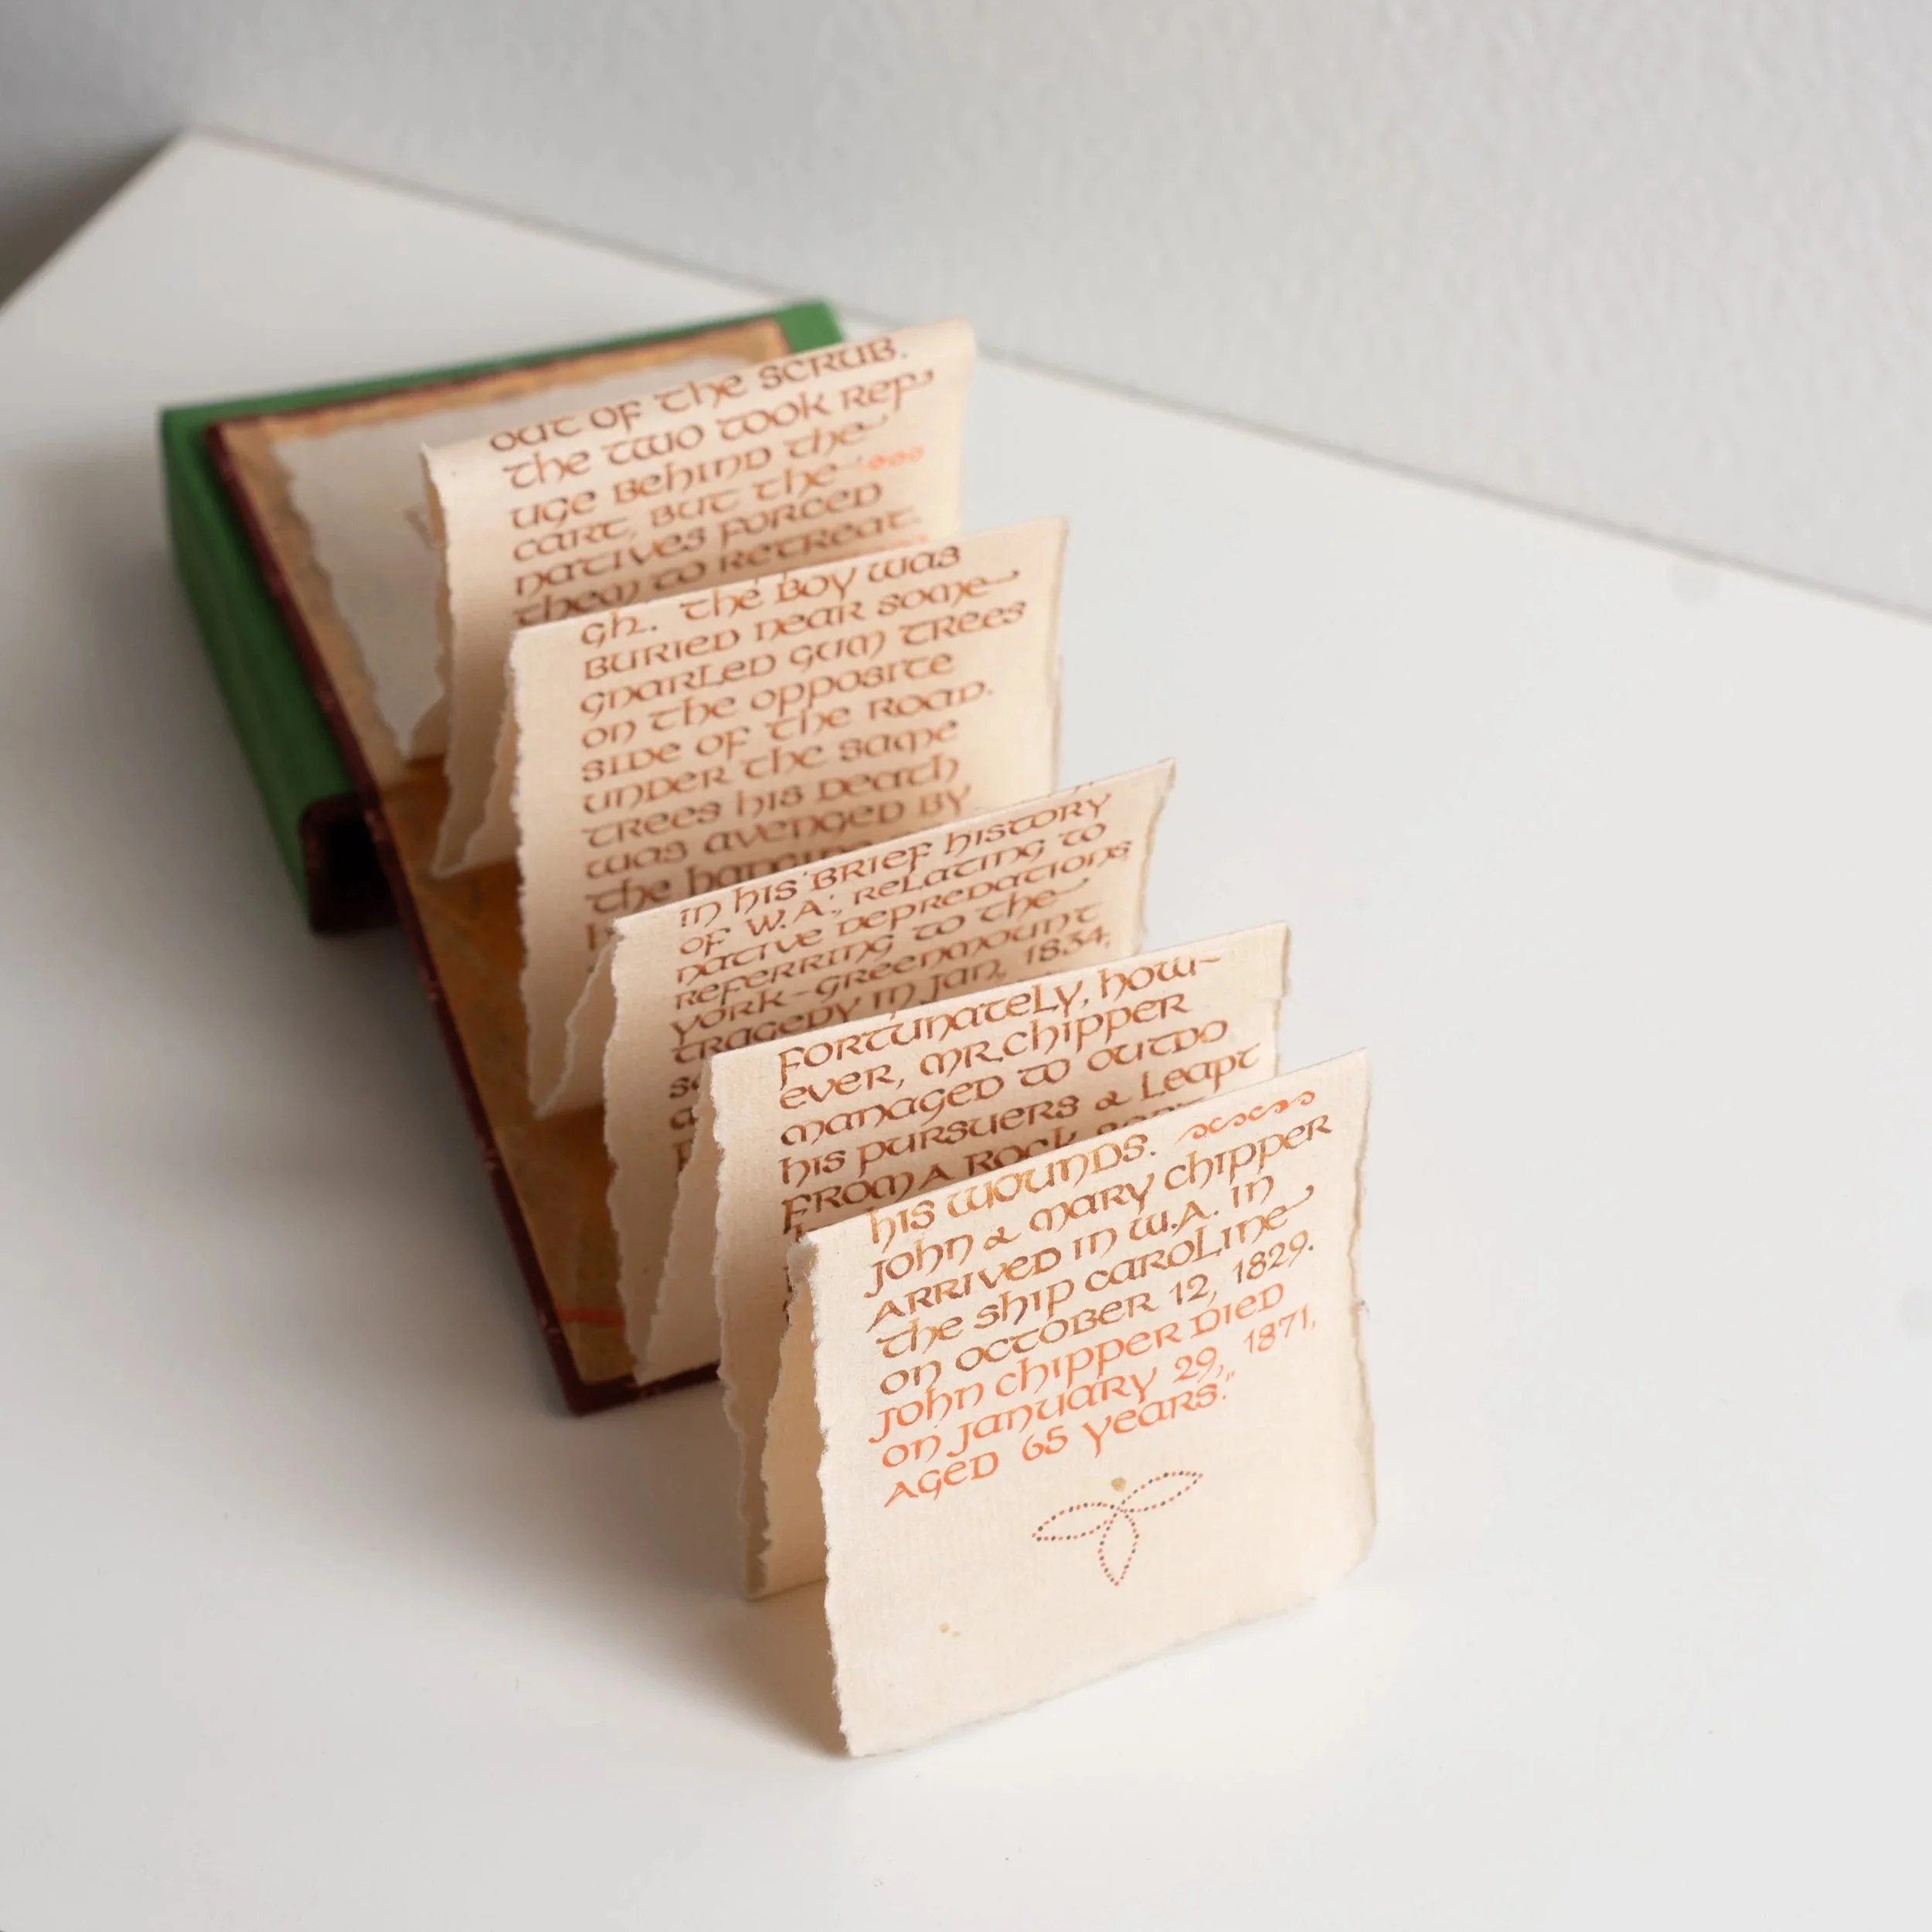 out of the scrub.
the two took ref
uge behind the
cart, but the
natives forced
them to retreat.
gh. the boy was
buried near some
gnarled gum trees
on the opposite
side of the road.
under the same
trees his death
was avenged by
the hanging
in his 'brief history
of W.A.', relating to
native depredations
referring to the
york-greenmount
tragedy in jan, 1834,
fortunately, how-
ever, mr. chipper
managed to outdo
his pursuers & leapt
from a rock
his wounds.
john & mary chipper
arrived in W.A. in
the ship caroline
on october 12, 1829.
john chipper died
on january 29, 1871,
aged 65 years."